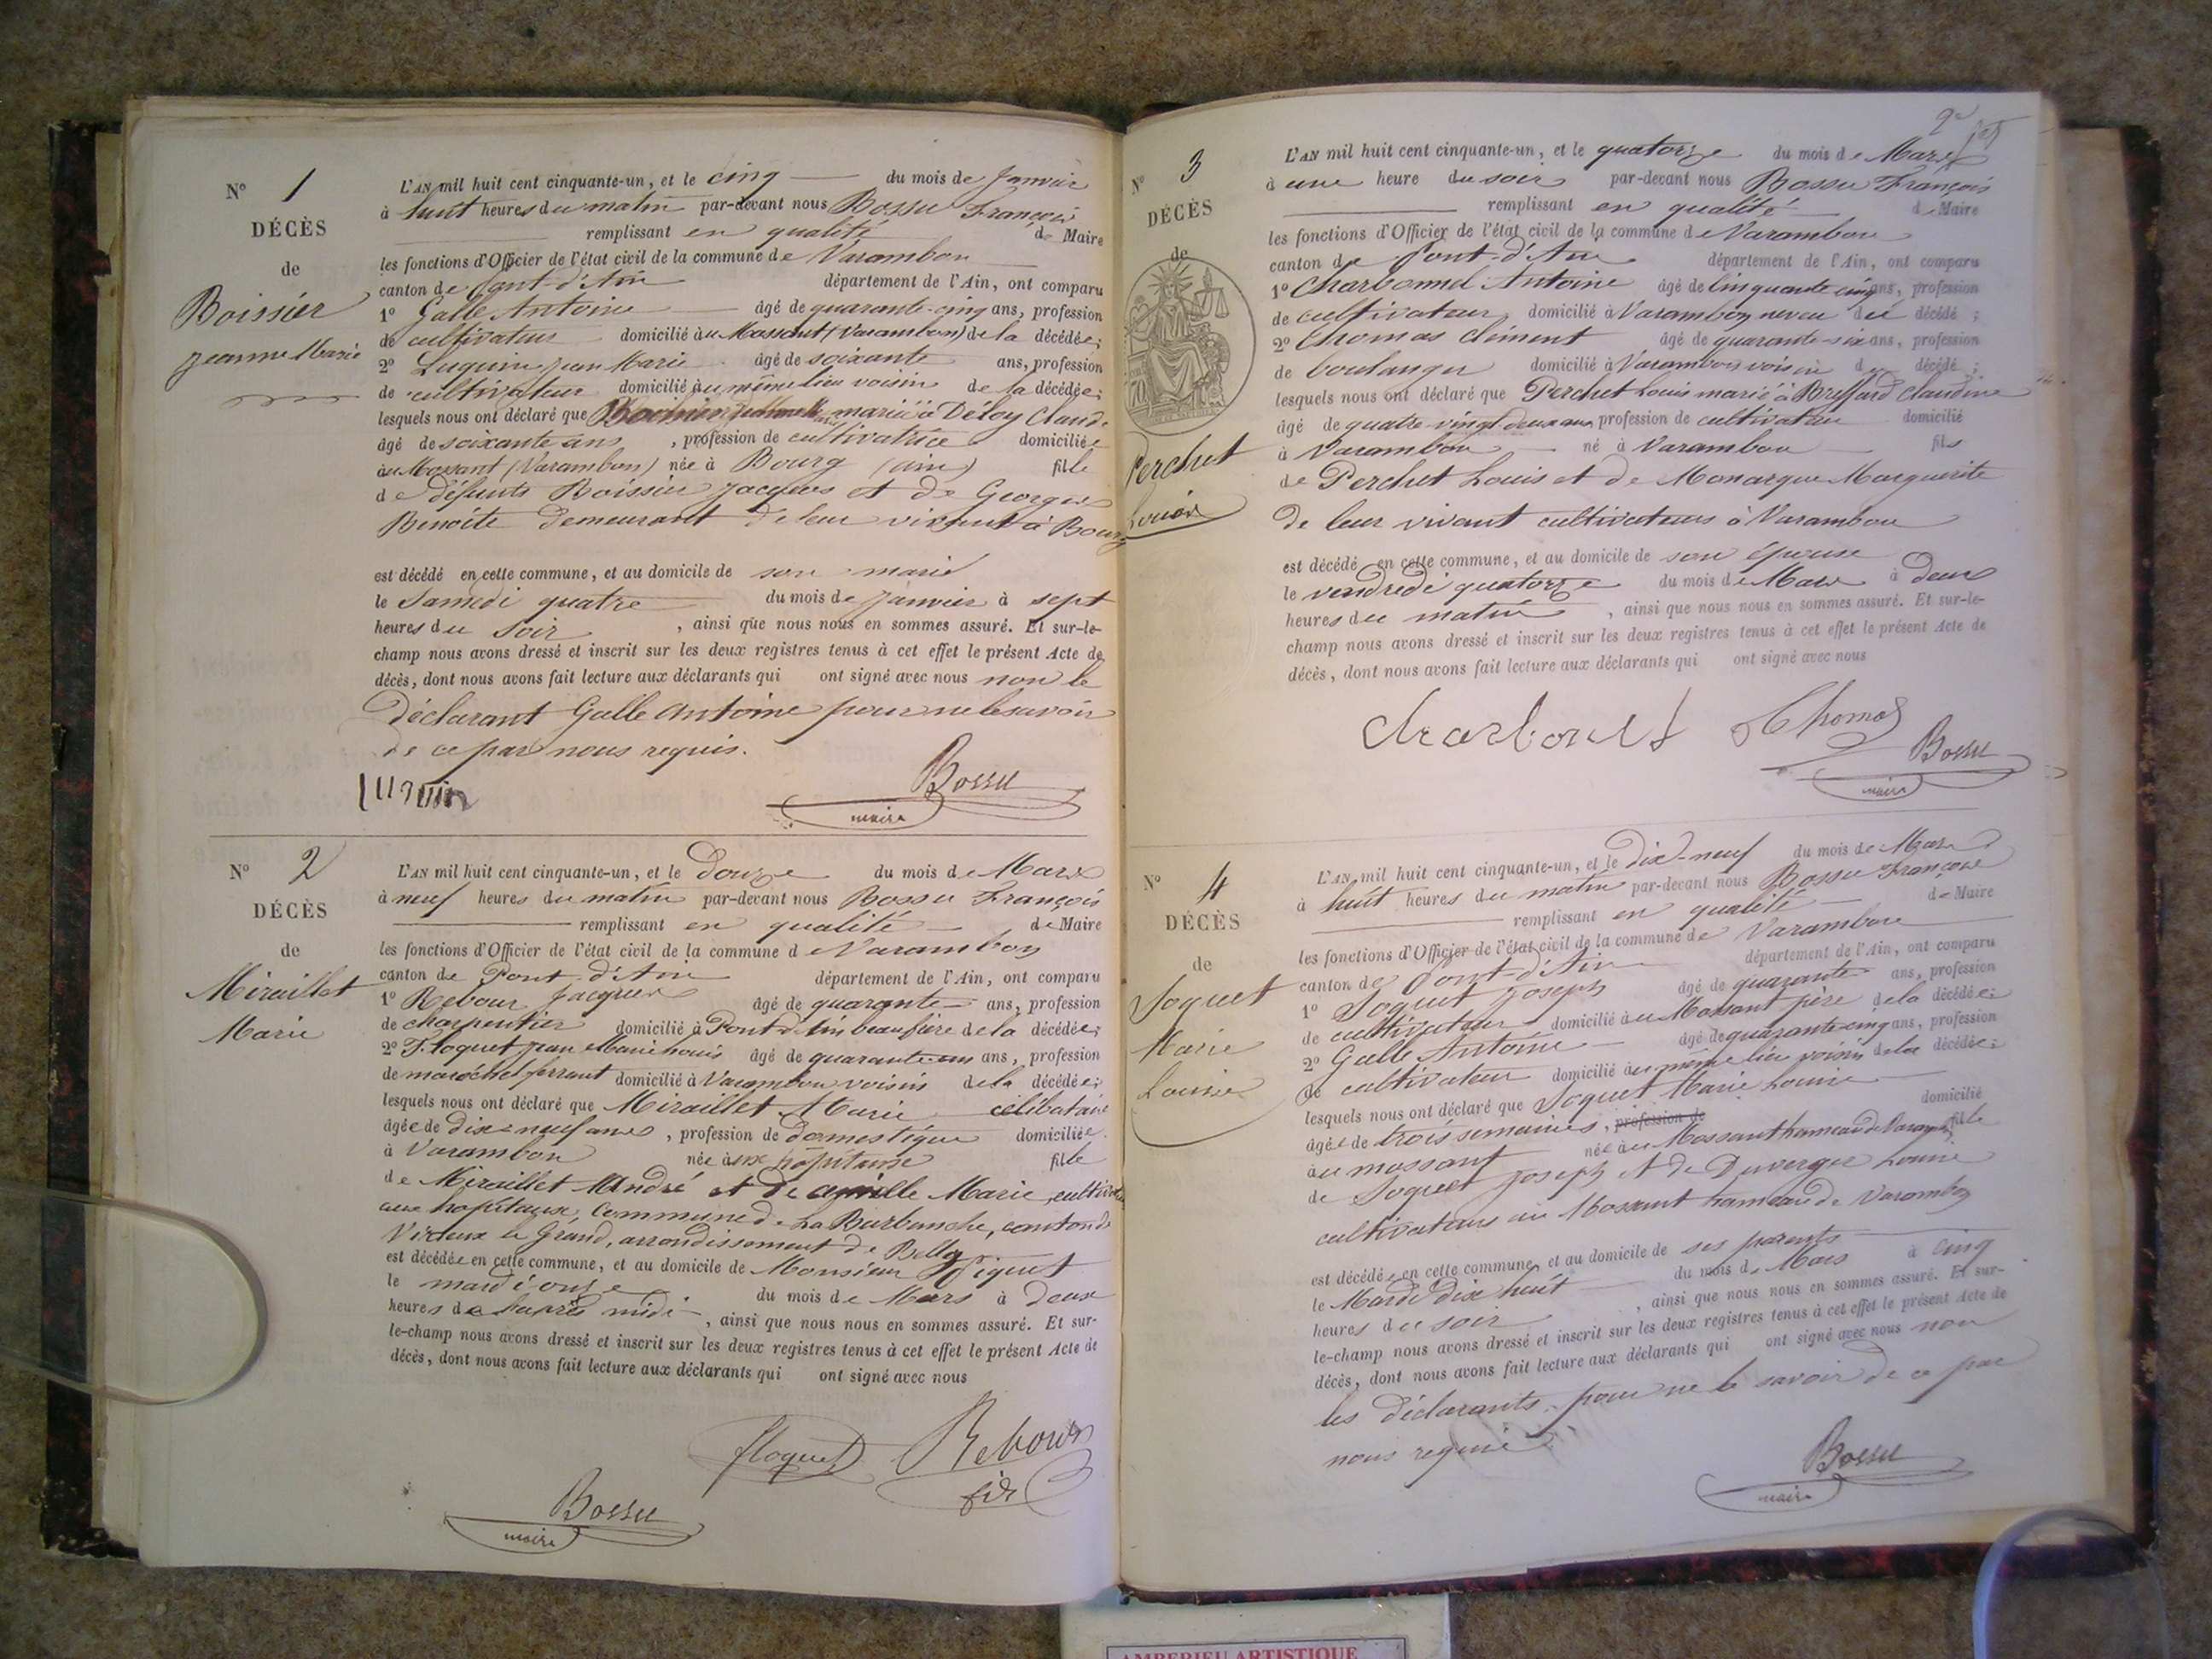 N° 1
DÉCÈS
de
Boissier
Jeanne Marie
L'AN mil huit cent cinquante-un, et le cinq du mois de Janvier
à huit heures du matin par-devant nous Bossu François
remplissant en qualité de Maire
les fonctions d'Officier de l'état civil de la commune de Varambon
canton de Pont-d'Ain département de l'Ain, ont comparu
1° Galle Antoine âgé de quarante-cinq ans, profession
de cultivateur domicilié au Mossant (Varambon) de la décédée;
2° Luquin Jean Marie âgé de soixante ans, profession
de cultivateur domicilié au même lieu voisin de la décédée;
lesquels nous ont déclaré que mariée à Déloy Claude
âgé de soixante ans, profession de cultivatrice domiciliée
au Mossant (Varambon) née à Bourg (ain) fille
de défunts Boissier Jacques et de Georges
Benoite demeurant de leur vivant à Bourg
est décédé en cette commune, et au domicile de son mari
le Samedi quatre du mois de Janvier à sept
heures du soir, ainsi que nous nous en sommes assuré. Et sur-le-
champ nous avons dressé et inscrit sur les deux registres tenus à cet effet le présent Acte de
décès, dont nous avons fait lecture aux déclarants qui ont signé avec nous non le
déclarant Galle Antoine pour ne le savoir
de ce par nous requis.
luquin Bossu
maire
N° 2
DÉCÈS
de
Miraillet
Marie
L'AN mil huit cent cinquante-un, et le Douze du mois de Mars
à neuf heures du matin par-devant nous Bossu François
remplissant en qualité de Maire
les fonctions d'Officier de l'état civil de la commune de Varambon
canton de Pont-d'Ain département de l'Ain, ont comparu
1° Rebour Jacques âgé de quarante ans, profession
de charpentier domicilié à Pont-d'Ain beaufrère de la décédée;
2° Floquet Jean Marie Louis âgé de quarante-un ans, profession
de maréchal ferrant domicilié à Varambon voisin de la décédée;
lesquels nous ont déclaré que Miraillet Marie célibataire
âgée de dix-neuf ans, profession de domestique domiciliée
à Varambon née aux hôpitaux fille
de Miraillet André et de Marie, cultivateurs
aux hôpitaux, Commune de La Burbanche, canton de
Virieux le Grand, arrondissement de Belley
est décédée en cette commune, et au domicile de Monsieur Piquet
le mardi onze du mois de Mars à deux
heures de l'après midi, ainsi que nous nous en sommes assuré. Et sur-
le-champ nous avons dressé et inscrit sur les deux registres tenus à cet effet le présent Acte de
décès, dont nous avons fait lecture aux déclarants qui ont signé avec nous
floquet Rebour
Bossu
maire
N° 3
DÉCÈS
de
Perchet
Louis
L'AN mil huit cent cinquante-un, et le quatorze du mois de Mars
à une heure du soir par-devant nous Bossu François
remplissant en qualité de Maire
les fonctions d'Officier de l'état civil de la commune de Varambon
canton de Pont-d'Ain département de l'Ain, ont comparu
1° Charbonnel Antoine âgé de cinquante cinq ans, profession
de cultivateur domicilié à Varambon neveu du décédé;
2° Thomas Clément âgé de quarante-six ans, profession
de boulanger domicilié à Varambon voisin du décédé;
lesquels nous ont déclaré que Perchet Louis marié à Bressard Claudine
âgé de quatre-vingt deux ans profession de cultivateur domicilié
à Varambon né à Varambon fils
de Perchet Louis et de Monarque Marguerite
de leur vivant cultivateurs à Varambon
est décédé en cette commune, et au domicile de son épouse
le vendredi quatorze du mois de Mars à deux
heures du matin, ainsi que nous nous en sommes assuré. Et sur-le-
champ nous avons dressé et inscrit sur les deux registres tenus à cet effet le présent Acte de
décès, dont nous avons fait lecture aux déclarants qui ont signé avec nous
Thomas
Bossu
maire
N° 4
DÉCÈS
de
Joquet
Marie
Louise
L'AN mil huit cent cinquante-un, et le dix-neuf du mois de Mars
à huit heures du matin par-devant nous Bossu François
remplissant en qualité de Maire
les fonctions d'Officier de l'état civil de la commune de Varambon
canton de Pont-d'Ain département de l'Ain, ont comparu
1° Joquet Joseph âgé de quarante ans, profession
de cultivateur domicilié au Mossant père de la décédée;
2° Galle Antoine âgé de quarante-cinq ans, profession
de cultivateur domicilié au même lieu voisin de la décédée;
lesquels nous ont déclaré que Joquet Marie Louise
âgée de trois semaines, profession de domicilié
au mossant née au Mossant hameau de Varambon fille
de Joquet Joseph et de Duverger Louise
cultivateurs au Mossant hameau de Varambon
est décédée en cette commune, et au domicile de ses parents
le Mardi dix huit du mois de Mars à cinq
heures du soir, ainsi que nous nous en sommes assuré. Et sur-
le-champ nous avons dressé et inscrit sur les deux registres tenus à cet effet le présent Acte de
décès, dont nous avons fait lecture aux déclarants qui ont signé avec nous non
les déclarants pour ne le savoir de ce par
nous requis
Bossu
maire
AMBERIEU ARTISTIQUE